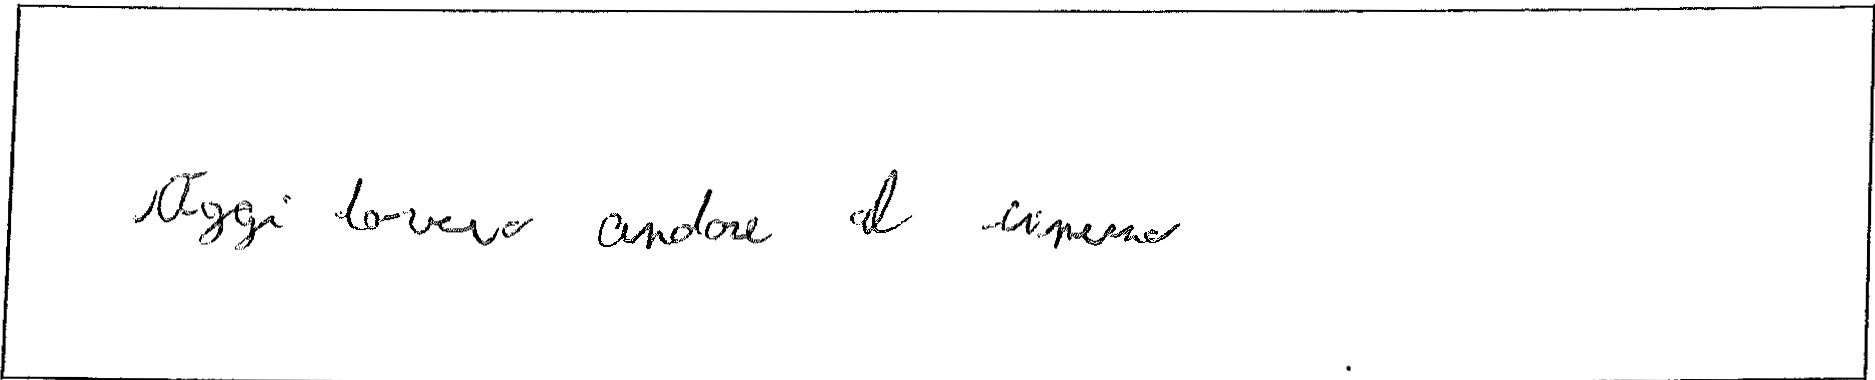 Oggi lavero andare al cinema